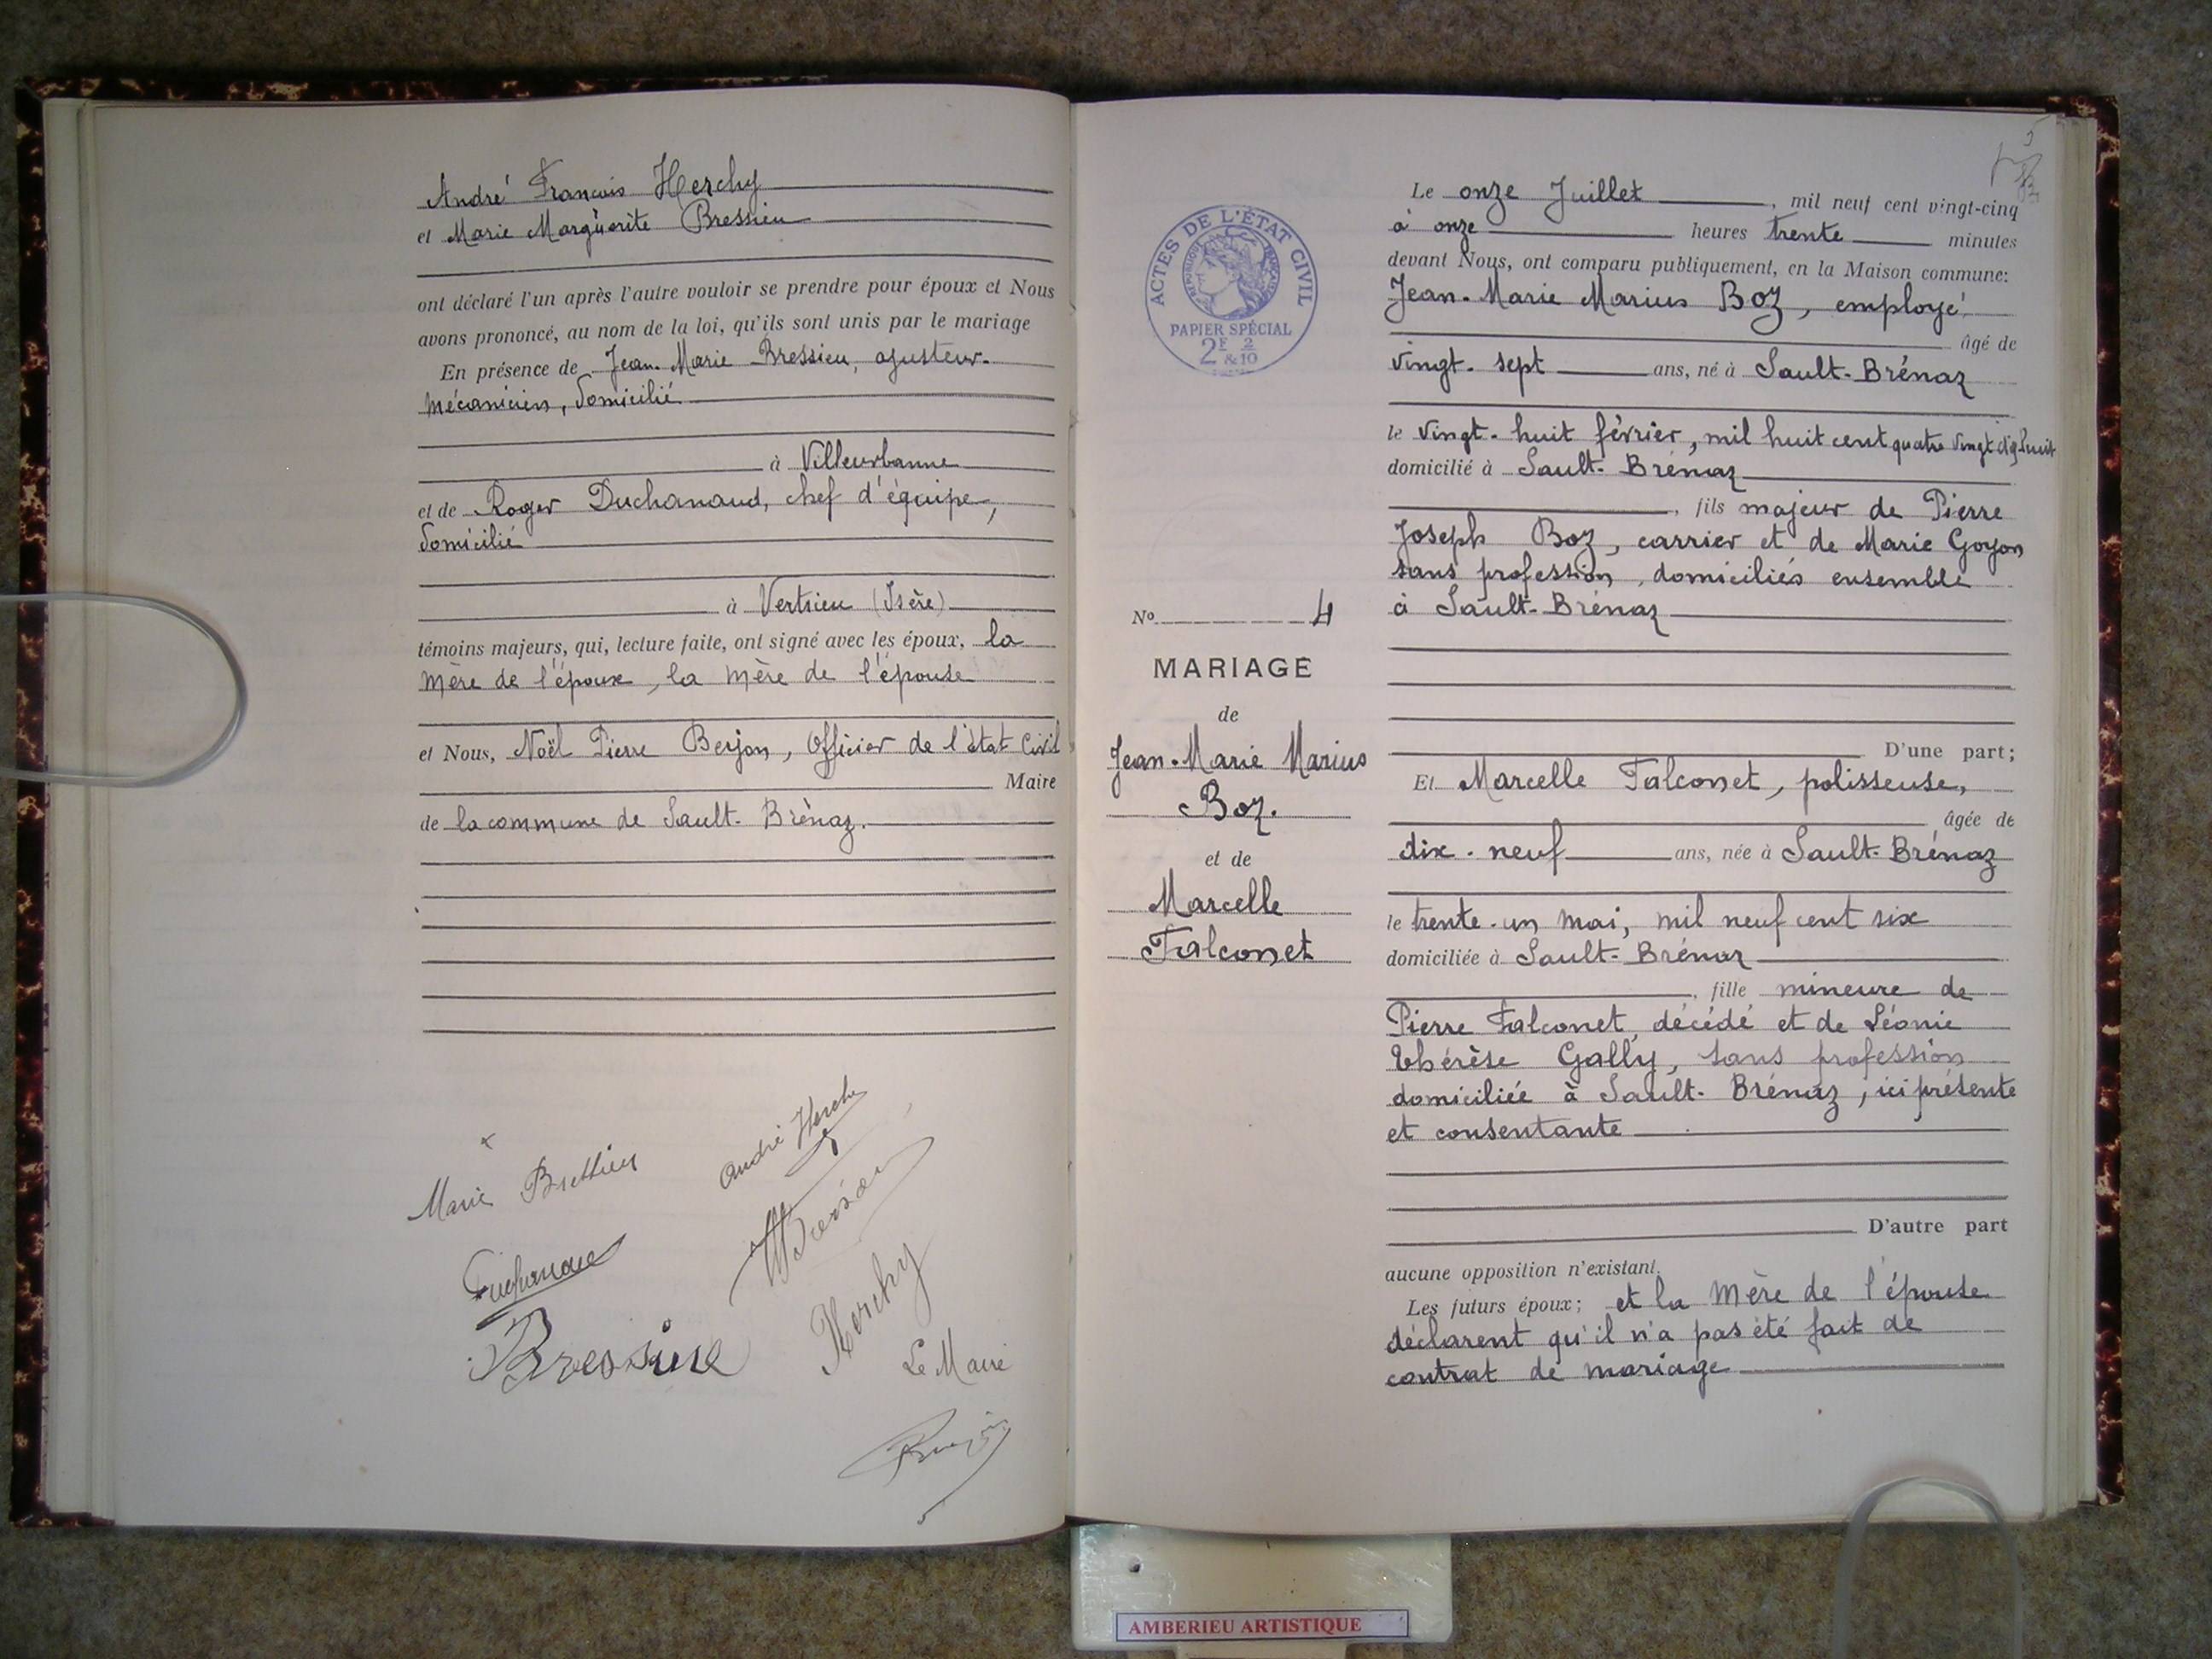 André François Herchy
et Marie Marguerite Bressieu
ont déclaré l'un après l'autre vouloir se prendre pour époux et Nous
avons prononcé, au nom de la loi, qu'ils sont unis par le mariage
En présence de Jean-Marie Bressieu, ajusteur-
mécanicien, domicilié
à Villeurbanne
et de Roger Duchanaud, chef d'équipe,
domicilié
à Vertrieu (Isère)
témoins majeurs, qui, lecture faite, ont signé avec les époux, la
mère de l'époux, la mère de l'épouse
et Nous, Noël Pierre Berjon, Officier de l'état Civil
Maire
de la commune de Sault-Brénaz.
André Herchy
Marie Bressieu
Herchy
Le Maire
ACTES DE L'ÉTAT CIVIL
RÉPUBLIQUE FRANÇAISE
PAPIER SPÉCIAL
2F 2
& 10
No 4
MARIAGE
de
Jean-Marie Marius
Boz.
et de
Marcelle
Falconet
5
Le onze Juillet, mil neuf cent vingt-cinq
à onze heures trente minutes
devant Nous, ont comparu publiquement, en la Maison commune:
Jean-Marie Marius Boz, employé
âgé de
vingt-sept ans, né à Sault-Brénaz
le vingt-huit février, mil huit cent quatre vingt dix huit
domicilié à Sault-Brénaz
, fils majeur de Pierre
Joseph Boz, carrier et de Marie Goyon
sans profession, domiciliés ensemble
à Sault-Brénaz
D'une part;
Et Marcelle Falconet, polisseuse,
âgée de
dix-neuf ans, née à Sault-Brénaz
le trente-un mai, mil neuf cent six
domiciliée à Sault-Brénaz
, fille mineure de
Pierre Falconet, décédé et de Léonie
Thérèse Gally, sans profession
domiciliée à Sault-Brénaz, ici présente
et consentante
D'autre part
aucune opposition n'existant.
Les futurs époux; et la mère de l'épouse
déclarent qu'il n'a pas été fait de
contrat de mariage
AMBERIEU ARTISTIQUE